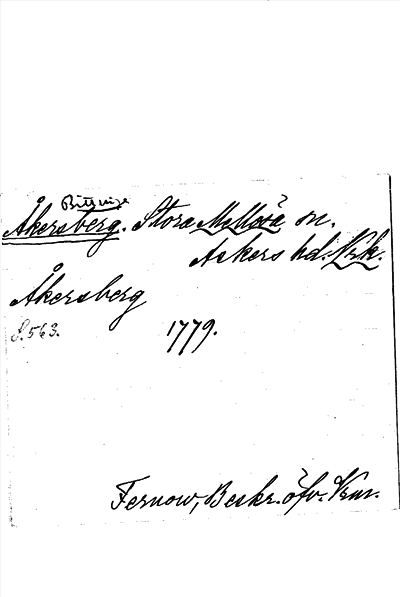 Åkersberg. Stora Mellösa sn.
Askers hd. Nrk.
Åkersberg
S. 563.
1779.
Fernow, Beskr. öfv. Vrm.